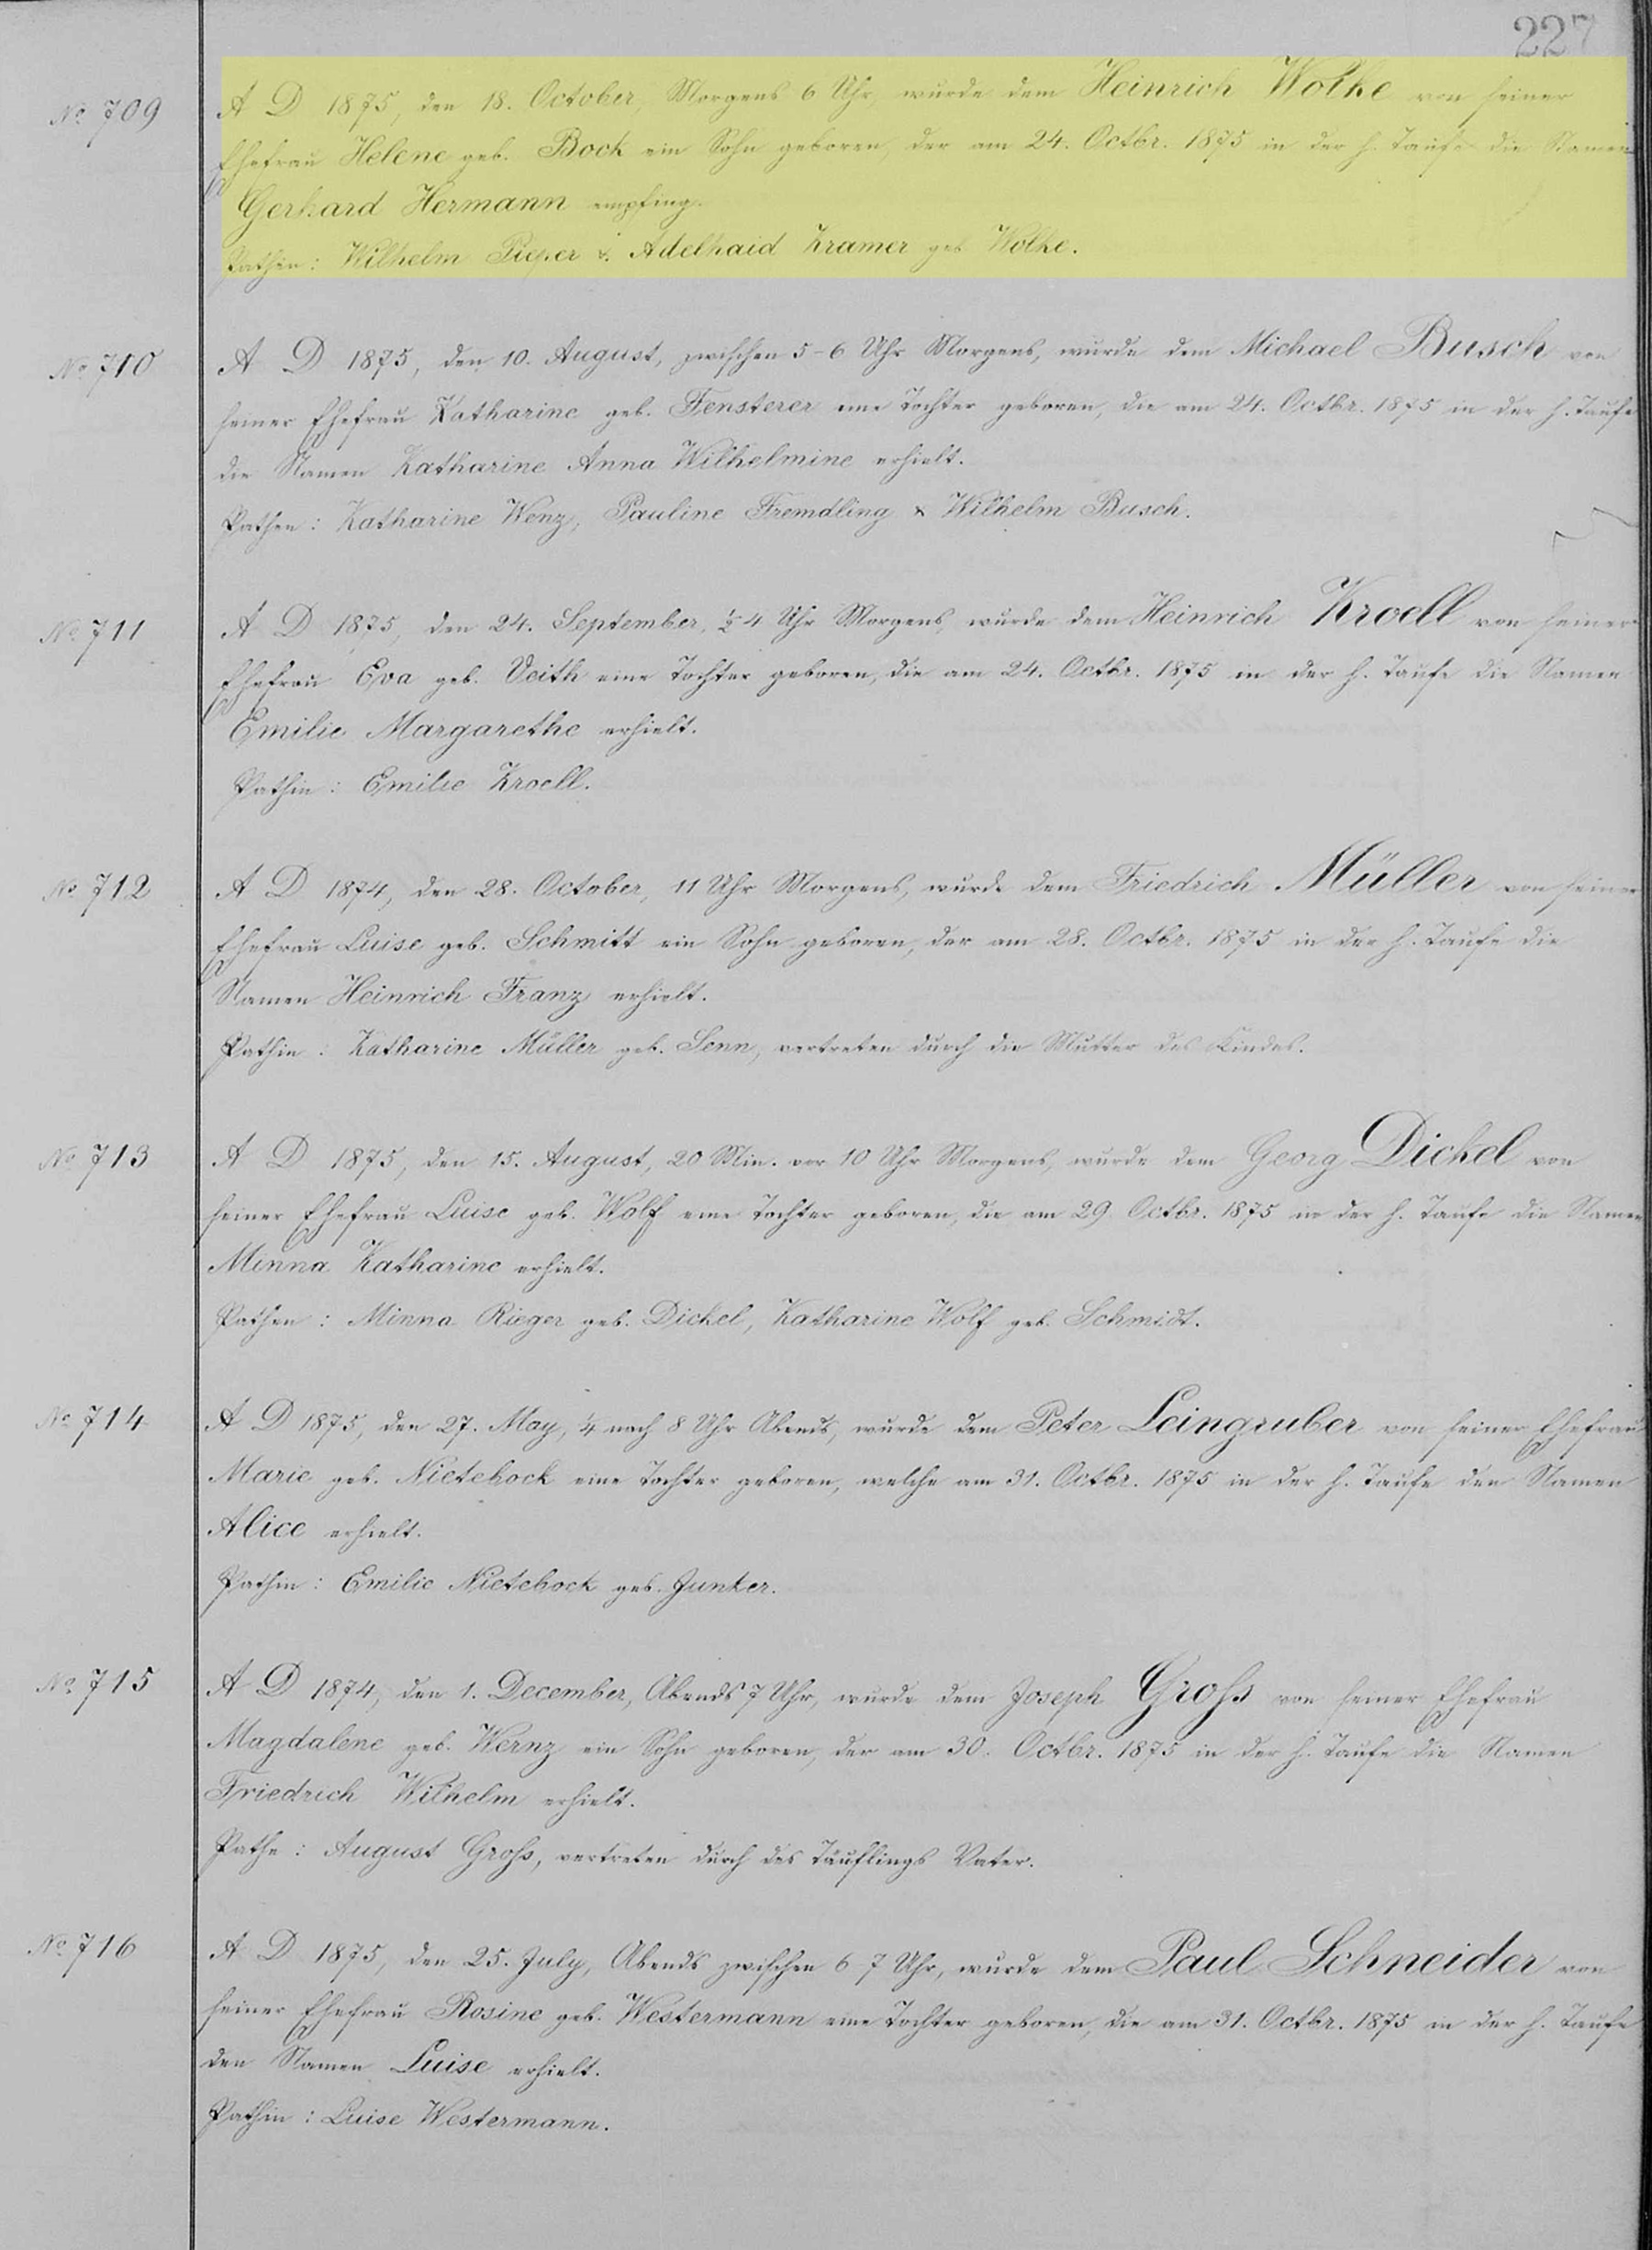 227
No 709
A D 1875, den 18. October, Morgens 6 Uhr, wurde dem Heinrich Wolke von seiner
Ehefrau Helene geb. Bock ein Sohn geboren, der am 24. Octbr. 1875 in der h. Taufe die Namen
Gerhard Hermann empfing.
Pathen: Wilhelm Pieper & Adelhaid Kramer geb. Wolke.
No 710
A D 1875, den 10. August, zwischen 5-6 Uhr Morgens, wurde dem Michael Busch von
seiner Ehefrau Katharine geb. Fensterer eine Tochter geboren, die am 24. Octbr. 1875 in der h. Taufe
die Namen Katharine Anna Wilhelmine erhielt.
Pathen: Katharine Wenz, Pauline Fremdling & Wilhelm Busch.
No 711
A D 1875, den 24. September, ½ 4 Uhr Morgens, wurde dem Heinrich Kroell von seiner
Ehefrau Eva geb. Veith eine Tochter geboren, die am 24. Octbr. 1875 in der h. Taufe die Namen
Emilie Margarethe erhielt.
Pathin: Emilie Kroell.
No 712
A D 1874, den 28. October, 11 Uhr Morgens, wurde dem Friedrich Müller von seiner
Ehefrau Luise geb. Schmitt ein Sohn geboren, der am 28. Octbr. 1875 in der h. Taufe die
Namen Heinrich Franz erhielt.
Pathin: Katharine Müller geb. Senn, vertreten durch die Mutter des Kindes.
No 713
A D 1875, den 15. August, 20 Min. vor 10 Uhr Morgens, wurde dem Georg Dickel von
seiner Ehefrau Luise geb. Wolf eine Tochter geboren, die am 29. Octbr. 1875 in der h. Taufe die Namen
Minna Katharine erhielt.
Pathen: Minna Rieger geb. Dickel, Katharine Wolf geb. Schmidt.
No 714
A D 1875, den 27. May, ¼ nach 8 Uhr Abends, wurde dem Peter Leingruber von seiner Ehefrau
Marie geb. Nietebock eine Tochter geboren, welche am 31. Octbr. 1875 in der h. Taufe den Namen
Alice erhielt.
Pathin: Emilie Nietebock geb. Junker.
No 715
A D 1874, den 1. December, Abends 7 Uhr, wurde dem Joseph Groß von seiner Ehefrau
Magdalene geb. Wernz ein Sohn geboren, der am 30. Octbr. 1875 in der h. Taufe die Namen
Friedrich Wilhelm erhielt.
Pathe: August Groß, vertreten durch des Täuflings Vater.
No 716
A D 1875, den 25. July, Abends zwischen 6-7 Uhr, wurde dem Paul Schneider von
seiner Ehefrau Rosine geb. Westermann eine Tochter geboren, die am 31. Octbr. 1875 in der h. Taufe
den Namen Luise erhielt.
Pathin: Luise Westermann.